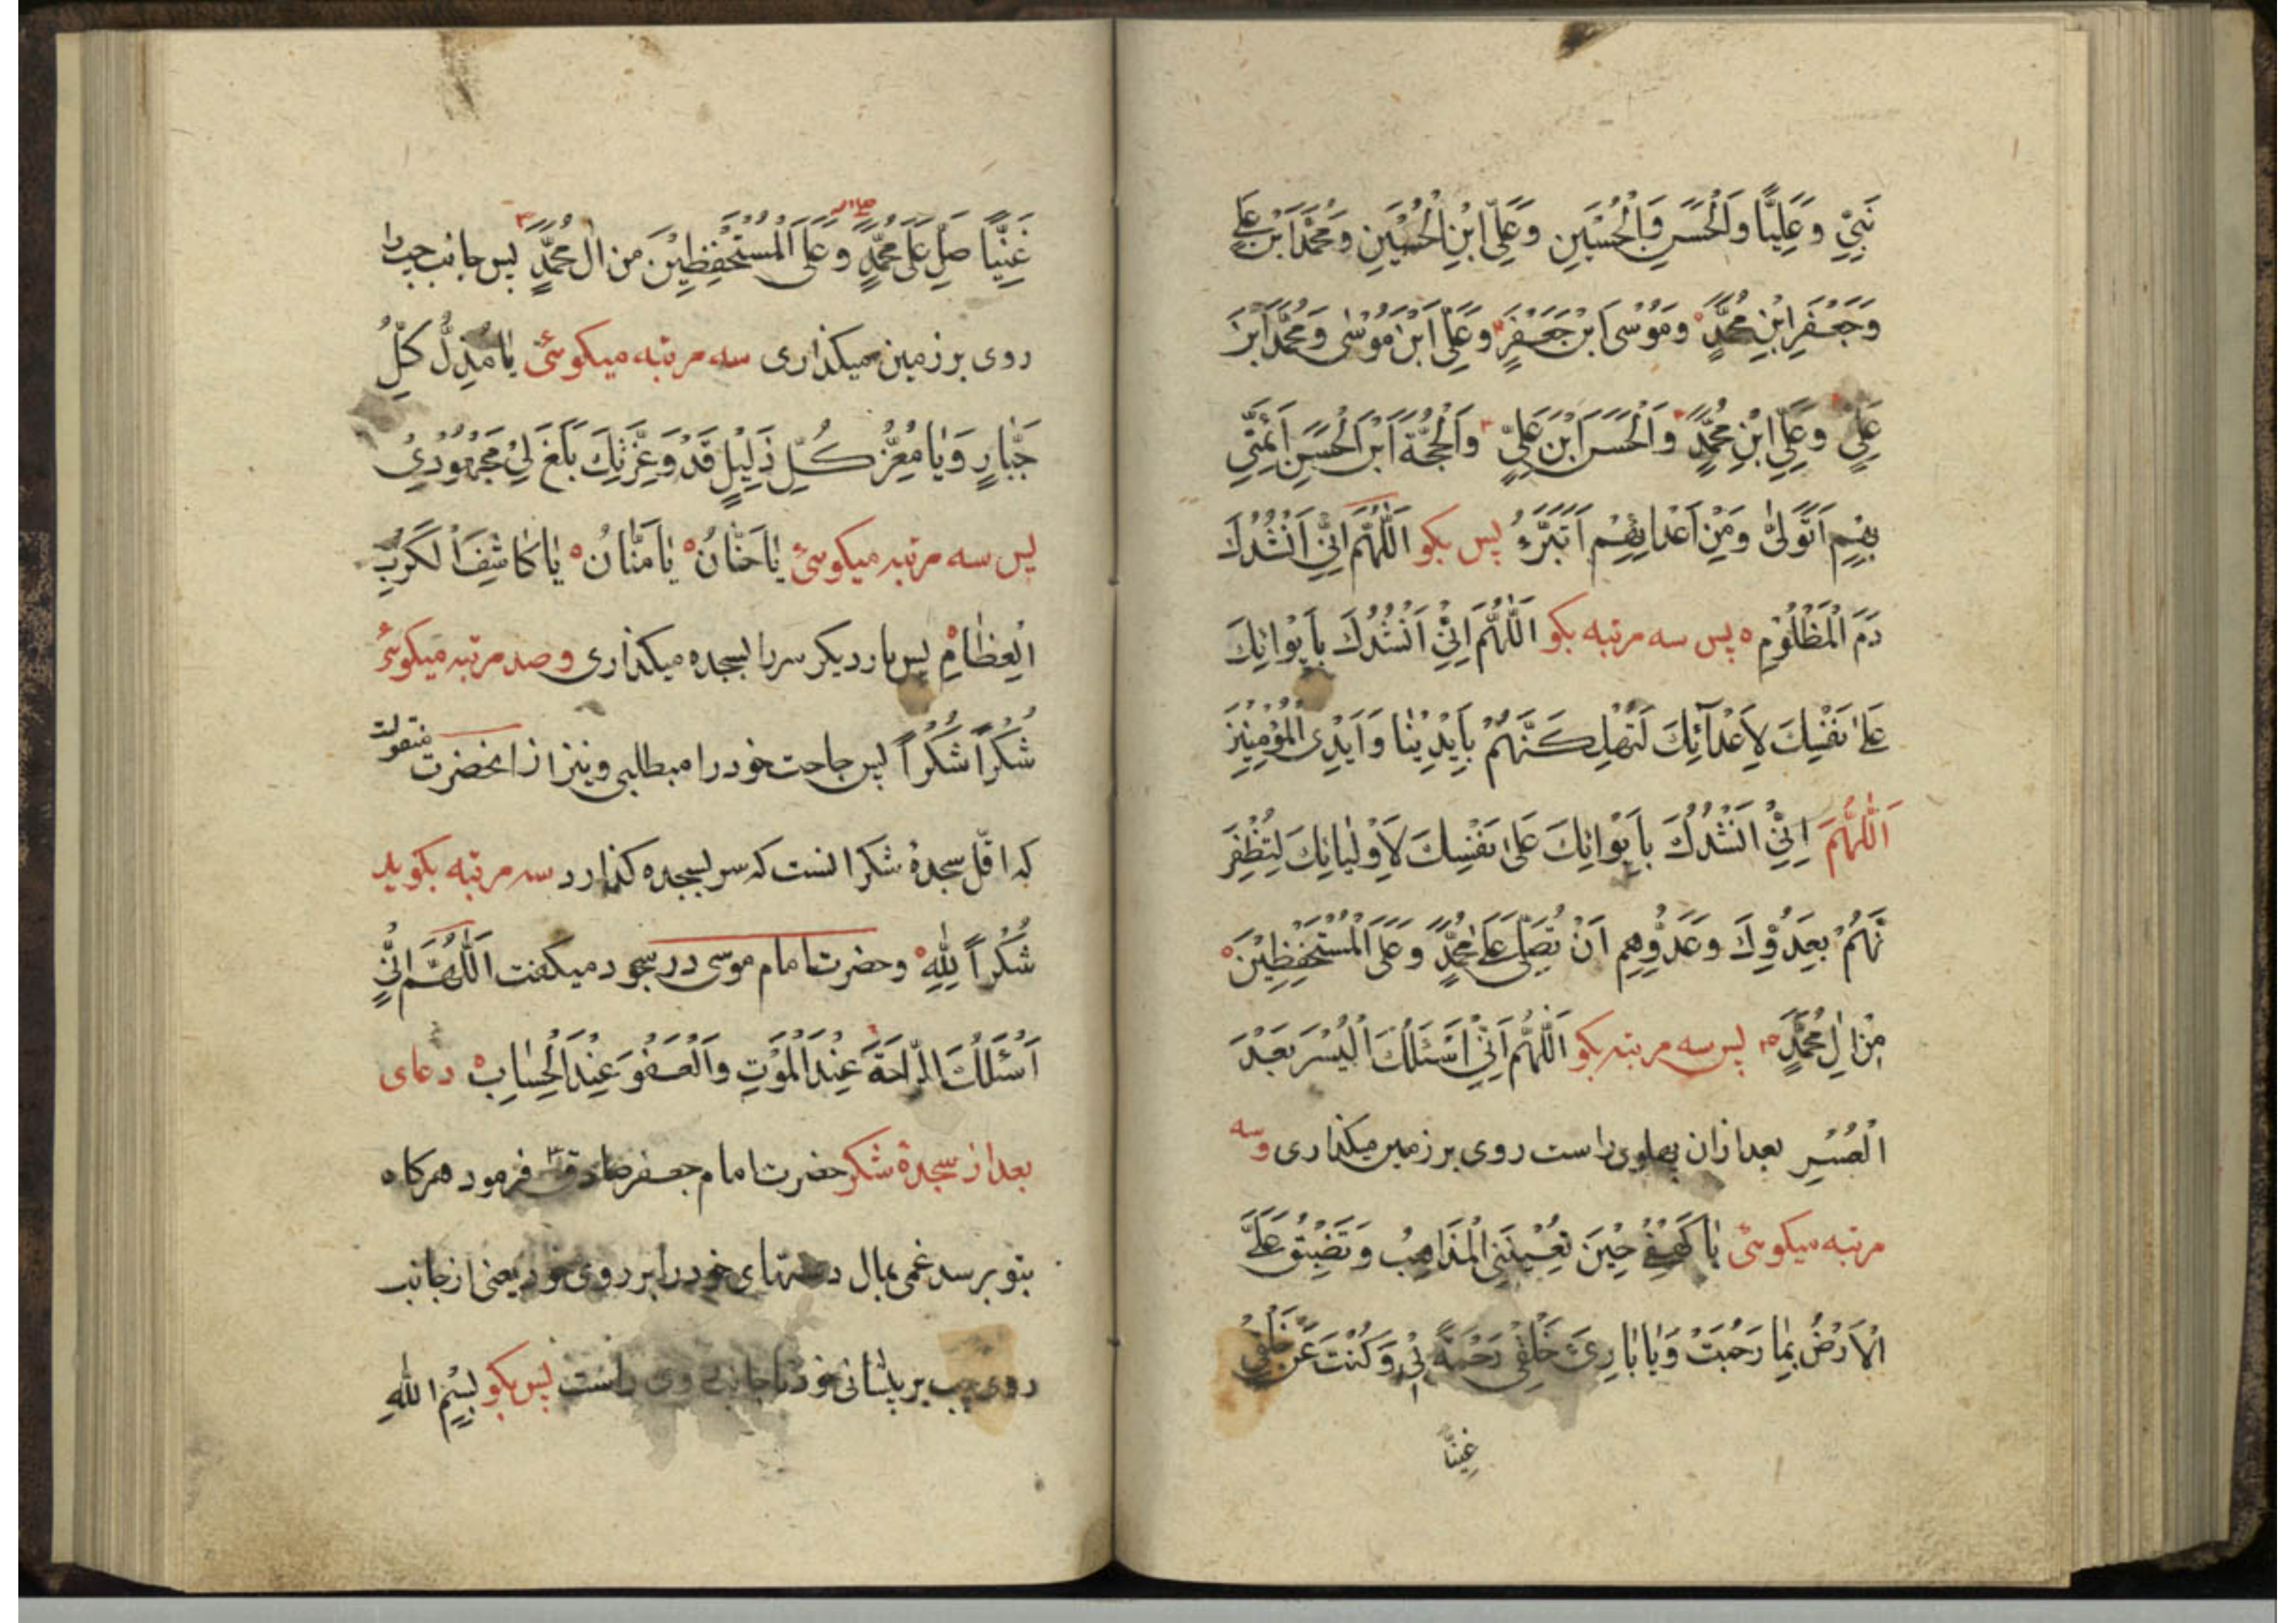 نَبِيّي وَعَلِيًّا وَالْحَسَنِ وَالْحُسَيْنِ وَعَلِيِّ ابْنِ الْحُسَيْنِ وَمُحَمَّدَ ابْنَ عَلِي
وَجَعْفَرِ ابْنِ مُحَمَّدٍ وَمُوْسَى ابْنِ جَعْفَرٍ وَعَلِيِّ ابْنِ مُوْسٰى وَمُحَمَّدَ ابْنَ
عَلِيٍّ وَعَلِيِّ ابْنِ مُحَمَّدٍ وَالْحَسَنَ ابْنَ عَلِيٍّ وَالْحُجَّةَ ابْنَ الْحَسَنِ اَئِمَّتِي
بِهِمْ اَتَوَلّىٰ وَمِنْ اَعْدائِهِمْ اَتَبَرَّءُ پس بكو اَللّٰهُمَّ اِنّي اَنْشُدُكَ
دَمَ الْمَظْلُوْمِ پس سه مرتبه بكو اَللّٰهُمَّ اِنّي اَنْشُدُكَ بِاَيْوائِكَ
عَلىٰ نَفْسِكَ لِاَعْدآئِكَ لَتُهْلِكَنَّهُمْ بِاَيْدِيْنٰا وَاَيْدِى الْمُؤْمِنِيْنَ
اَللّٰهُمَّ اِنّي اَنْشُدُكَ بِاَيْوائِكَ عَلىٰ نَفْسِكَ لِاَوْلِيٰائِكَ لِتُظْفِرَ
نَّهُمْ بِعَدُوِّكَ وَعَدُوِّهِمْ اَنْ تُصَلِّيَ عَلىٰ مُحَمَّدٍ وَعَلَى الْمُسْتَحْفِظِيْنَ
مِنْ اٰلِ مُحَمَّدٍ پس سه مرتبه بكو اَللّٰهُمَّ اِنّي اَسْئَلُكَ الْيُسْرَ بَعْدَ
الْعُسْرِ بعد ازان پهلوى راست روى بر زمين ميكذارى وسه
مرتبه ميكوئى يٰا كَهْفِي حِيْنَ تُعْيِيْنِي الْمَذاهِبُ وَتَضِيْقُ عَلَيَّ
الْاَرْضُ بِمٰا رَحُبَتْ وَيٰا بٰارِئَ خَلْقِي رَحْمَةً بِيْ وَكُنْتَ عَنْ خَلْقِي
غَنِيًّا
غَنِيًّا صَلِّ عَلىٰ مُحَمَّدٍ وَعَلَى الْمُسْتَحْفِظِيْنَ مِن اٰلِ مُحَمَّدٍ پس جانب چپ را
روى بر زمين ميكذارى سه مرتبه ميكوئى يٰا مُذِلَّ كُلِّ
جَبّٰارٍ وَيٰا مُعِزَّ كُلِّ ذَلِيْلٍ قَدْ وَعِزَّتِكَ بَلَغَ لِيْ مَجْهُوْدِيْ
پس سه مرتبه ميكوئى يٰا حَنّٰانُ يٰا مَنّٰانُ يٰا كٰاشِفَ الْكَرْبِ
الْعِظٰامِ پس بار ديكر سر را بسجده ميكذارى وصد مرتبه ميكوئى
شُكْرًا شُكْرًا پس حاجت خود را ميطالبى ونيز از انحضرت منقولست
كه اقلّ سجدهٔ شكر انست كه سر بسجده كذارد سه مرتبه بكويد
شُكْرًا لِلّٰهِ وحضرت امام موسى در سجود ميكفت اَللّٰهُمَّ اِنّي
اَسْئَلُكَ الرّاحَةَ عِنْدَ الْمَوْتِ وَالْعَفْوَ عِنْدَ الْحِسٰابِ دعاى
بعد از سجدهٔ شكر حضرت امام جعفر صادق فرمود هركاه
بتو برسد غمى بمال دستهاى خود را بر روى خود يعنى از جانب
روى چپ بر پيشانى خود تا جانب روى راست پس بكو بِسْمِ اللّٰهِ